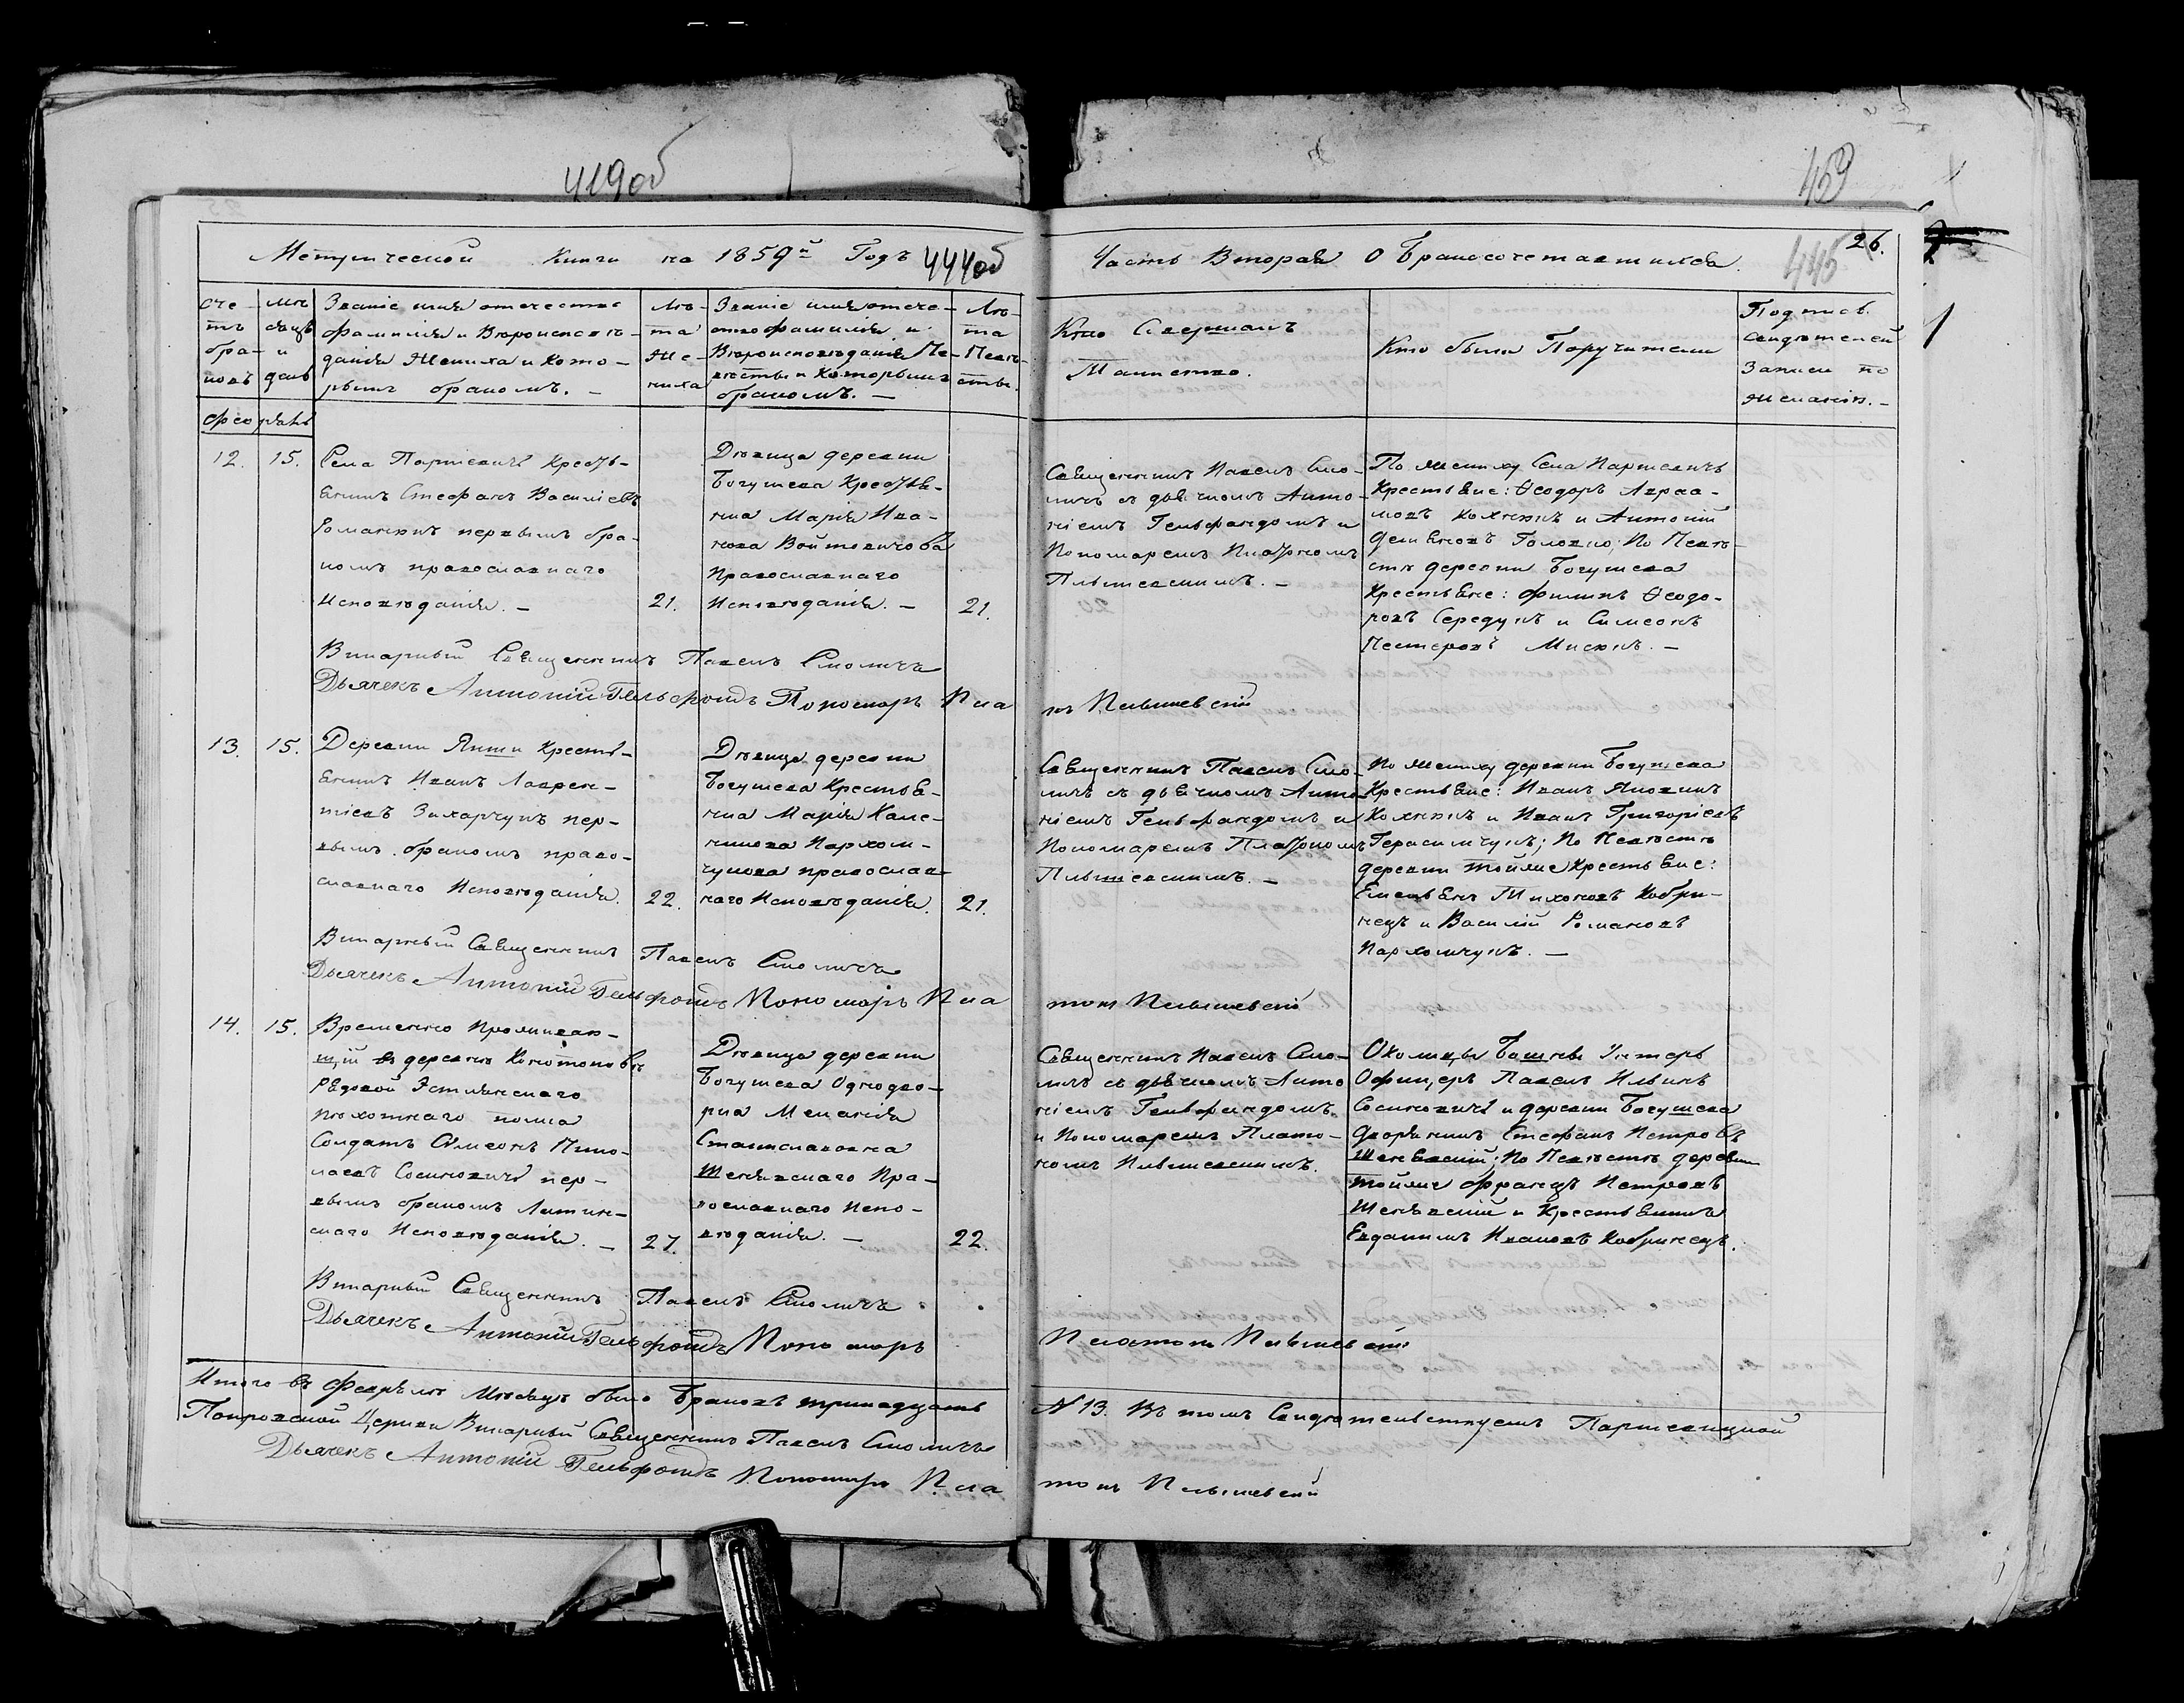 419об
459
Метрической Книги на 1859й Годъ 444об
Часть Вторая О Бракосочетавшихся. 445 26.
Сче-
тъ
бра-
ковъ
Мѣ
сяцъ
и
день
Званіе имя отечество
фамилія и Вѣроисповѣ-
данія Жениха и Кото-
рымъ бракомъ. —
Лѣ-
та
Же-
ниха
Званіе имя отече-
ство фамилія и
Вѣроисповѣданія Не-
вѣсты и Которымъ
бракомъ. —
Лѣ-
та
Невѣ-
сты.
Кто Совершалъ
Таинство.
Кто были Поручители
Подпись
свидѣтелей
Записи по
желанію. —
Февраль
12. 15.
Села Парцевичъ Кресть-
янинъ Стефанъ Василіевъ
Романюкъ первымъ бра-
комъ православнаго
Исповѣданія. — 21.
Дѣвица деревни
Богушева Крестья-
нка Марія Ива-
нова Войтовичова
Православнаго
Исповѣданія. — 21.
Священникъ Павелъ Смо-
личъ съ дьячкомъ Анто-
ніемъ Гельфандомъ и
Пономаремъ Платономъ
Пльшевскимъ. —
По жениху Села Парцевичъ
Крестьяне: Ѳеодоръ Авраа-
мовъ Кохнюкъ и Антоній
Демьяновъ Головко; По Невѣ-
стѣ деревни Богушева
Крестьяне: Филипъ Ѳеодо-
ровъ Середукъ и Симеонъ
Нестеровъ Мисюкъ. —
Викарный Священникъ Павелъ Смоличъ
Дьячекъ Антоній Гельфондъ Пономарь Пла
нъ Пльшевскій
13. 15.
Деревни Якши Кресть-
янинъ Иванъ Лаврен-
тіевъ Захарчукъ пер-
вымъ бракомъ право-
славнаго Исповѣданія. 22.
Дѣвица деревни
Богушева Крестья-
нка Марія
Пархом-
чукова православ-
наго Исповѣданія. 21.
Священникъ Павелъ Смо-
личъ съ дьячкомъ Анто-
ніемъ Гельфандомъ и
Пономаремъ Платономъ
Пльшевскимъ. —
По жениху деревни Богушева
Крестьяне: Иванъ
Кохнюкъ и Иванъ Григоріевъ
Герасимчукъ; По Невѣстѣ
деревни Крестьяне:
Емельянъ Тихоновъ Кобри-
нецъ и Василій Романовъ
Пархомчукъ. —
Викарный Священникъ Павелъ Смоличъ
Дьячекъ Антоній Гельфондъ Пономарь Пла
тонъ Пльшевскій
14. 15.
Временно Проживаю-
щій въ деревнѣ
Рядовой Эстлянскаго
пѣхотнаго полка
Солдатъ Симеонъ Нико-
лаевъ Сосиновичъ пер-
вымъ бракомъ Латин-
скаго Исповѣданія. — 27.
Дѣвица деревни
Богушева Однодво-
рка Меланія
Станиславовна
Пра-
вославнаго Испо-
вѣданія. — 22.
Священникъ Павелъ Смо-
личъ съ дьячкомъ Анто
ніемъ Гельфандомъ
и Пономаремъ Плато-
номъ Пльшевскимъ.
Околицы Унтеръ
Офицеръ Павелъ Ильинъ
Сосиновичъ и деревни Богушева
Дворянинъ Стефанъ Петровъ
По Невѣстѣ деревни
Францъ Петровъ
и Крестьянинъ
Евдокимъ Ивановъ Кобринецъ.
Викарный Священникъ Павелъ Смоличъ
Дьячекъ Антоній Гельфондъ Пономарь
Платонъ Пльшевскій
Итого въ Февралѣ Мѣсяцѣ было Браковъ тринадцать
N 13. Въ томъ Свидѣтельствуемъ Парцевицкой
Покровской Церкви Викарный Священникъ Павелъ Смоличъ
Дьячекъ Антоній Гельфондъ Пономарь Пла
тонъ Пльшевскій